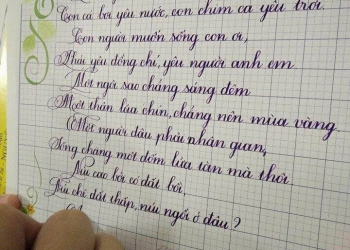 Con cá bơi yêu nước, con chim ca yêu trời.
Con người muốn sống con ơi,
Phải yêu đồng chí, yêu người anh em
Một ngôi sao chẳng sáng đêm
Một thân lúa chín, chẳng nên mùa vàng.
Một người đâu phải nhân gian,
Sống chăng một đốm lửa tàn mà thôi
Núi cao bởi có đất bồi,
Núi chê đất thấp, núi ngồi ở đâu?